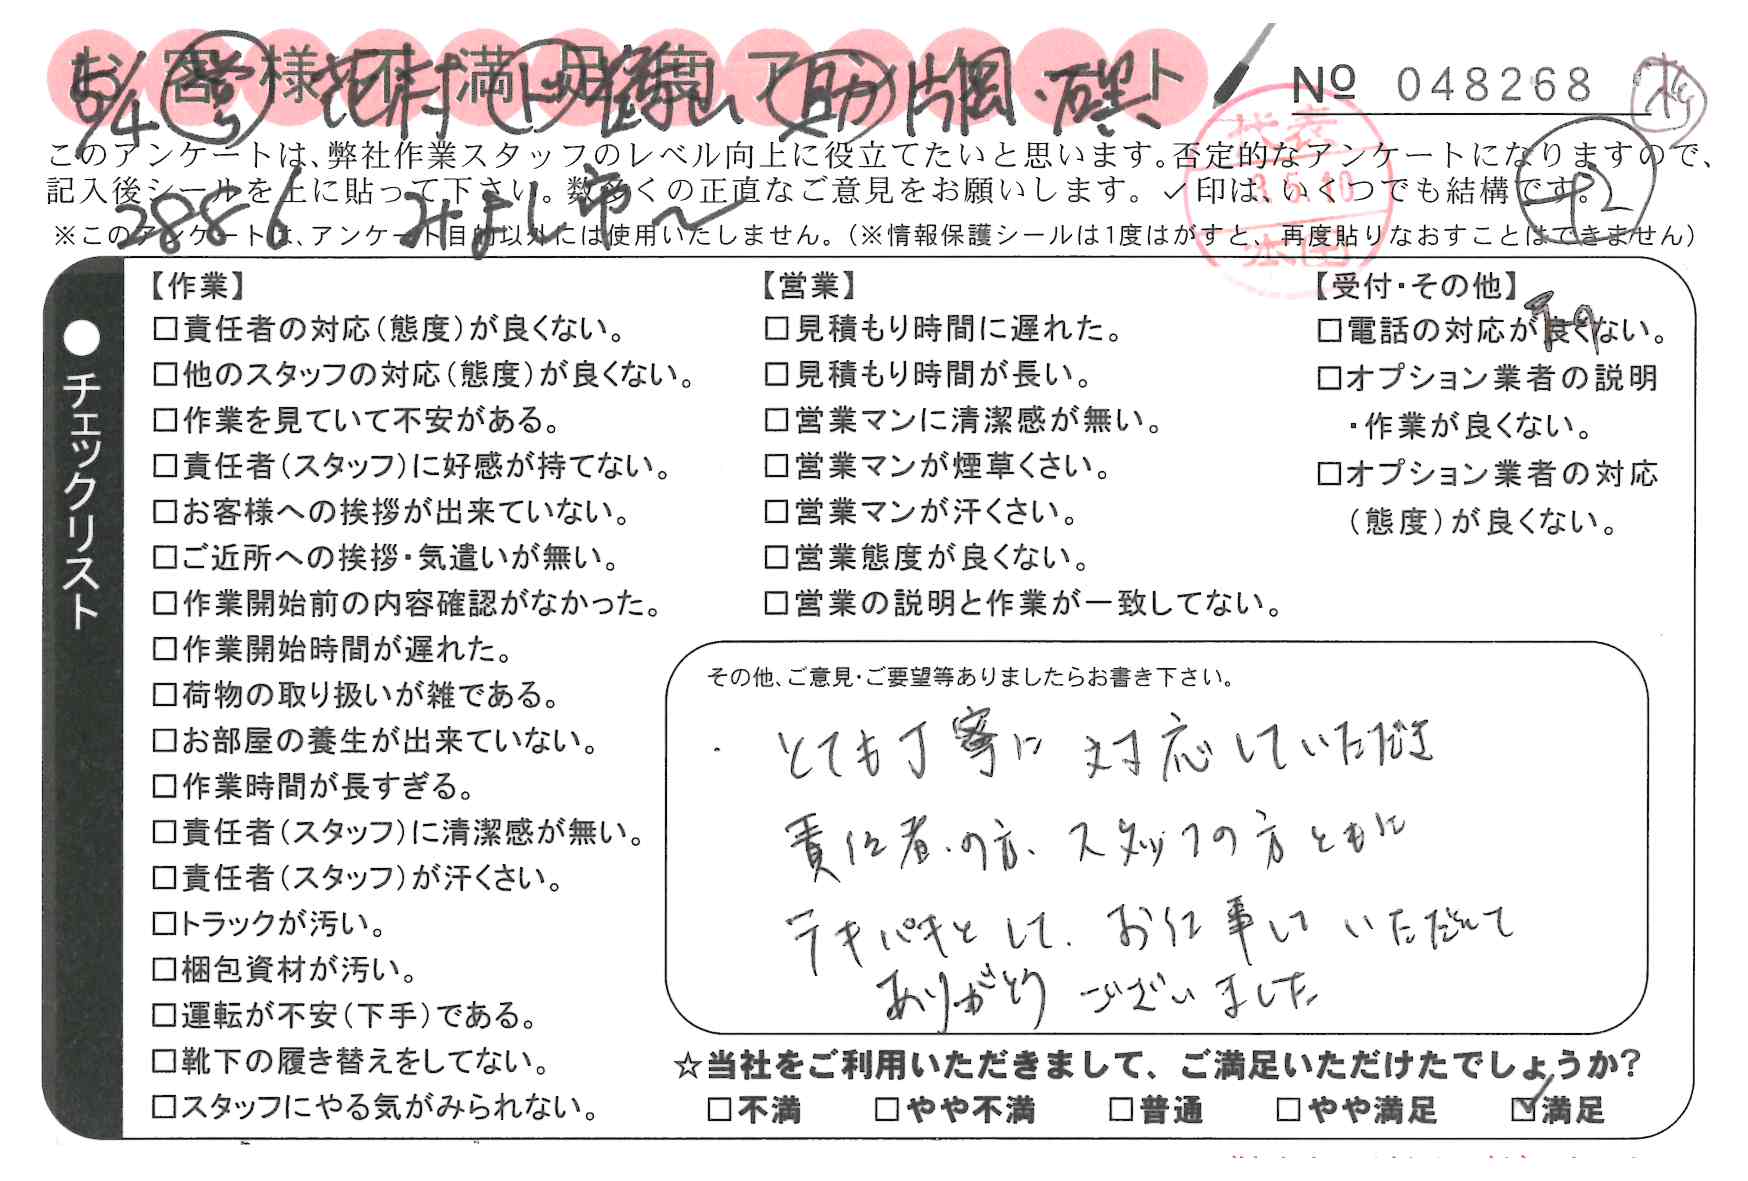 お客様不満足度アンケート
5/4 営 花村 ド 鶴山 助 片桐・石黒
No 048268
このアンケートは、弊社作業スタッフのレベル向上に役立てたいと思います。否定的なアンケートになりますので、
記入後シールを上に貼って下さい。数多くの正直なご意見をお願いします。✓印は、いくつでも結構です。
2886 みよし市〜
代表
3.5.10
※このアンケートは、アンケート目的以外には使用いたしません。(※情報保護シールは1度はがすと、再度貼りなおすことはできません)
●チェックリスト
【作業】
□責任者の対応(態度)が良くない。
□他のスタッフの対応(態度)が良くない。
□作業を見ていて不安がある。
□責任者(スタッフ)に好感が持てない。
□お客様への挨拶が出来ていない。
□ご近所への挨拶・気遣いが無い。
□作業開始前の内容確認がなかった。
□作業開始時間が遅れた。
□荷物の取り扱いが雑である。
□お部屋の養生が出来ていない。
□作業時間が長すぎる。
□責任者(スタッフ)に清潔感が無い。
□責任者(スタッフ)が汗くさい。
□トラックが汚い。
□梱包資材が汚い。
□運転が不安(下手)である。
□靴下の履き替えをしてない。
□スタッフにやる気がみられない。
【営業】
□見積もり時間に遅れた。
□見積もり時間が長い。
□営業マンに清潔感が無い。
□営業マンが煙草くさい。
□営業マンが汗くさい。
□営業態度が良くない。
□営業の説明と作業が一致してない。
【受付・その他】
□電話の対応が良くない。
□オプション業者の説明
・作業が良くない。
□オプション業者の対応
(態度)が良くない。
その他、ご意見・ご要望等ありましたらお書き下さい。
・とても丁寧に対応していただき
責任者の方、スタッフの方ともに
テキパキとして、お仕事して いただいて
ありがとう ございました
☆当社をご利用いただきまして、ご満足いただけたでしょうか?
□不満 □やや不満 □普通 □やや満足 ☑満足